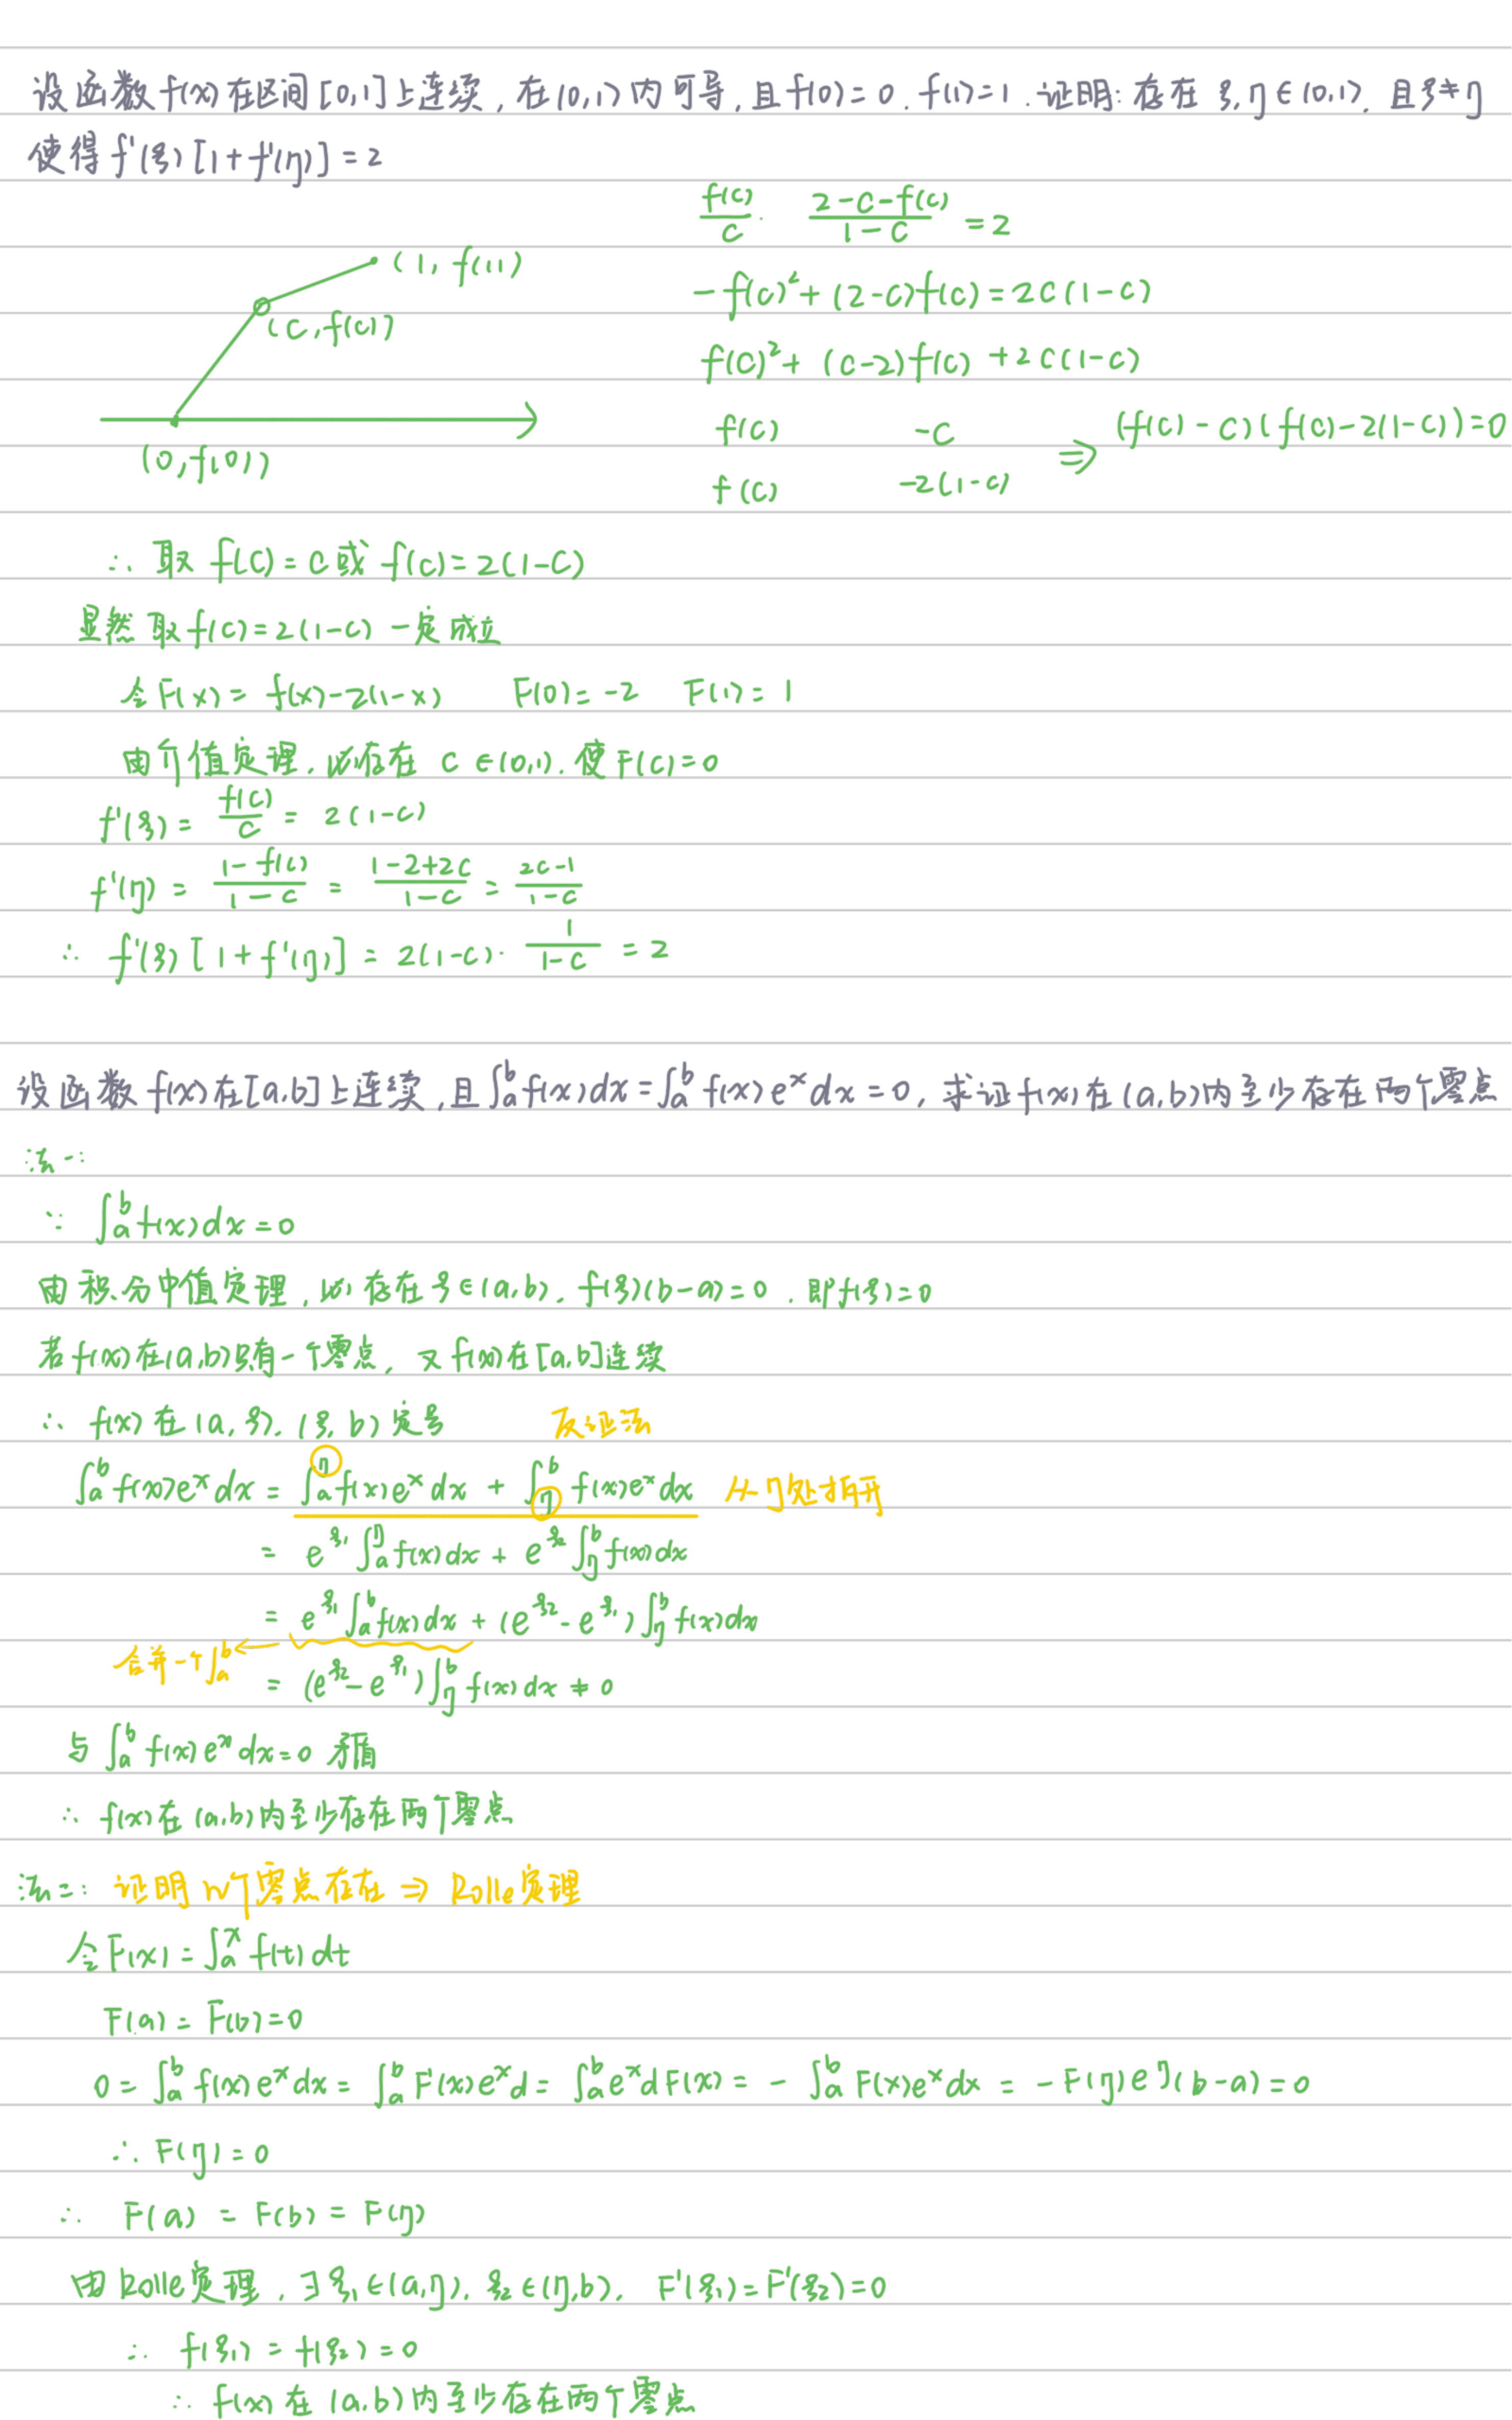 设函数 f(x) 在区间 [0,1] 上连续, 在 (0,1) 内可导, 且 f(0)=0. f(1)=1. 证明: 存在 ξ,η∈(0,1). 且 ξ≠η
使得 f'(ξ)[1+f'(η)]=2
f(c)/c · (2-c-f(c))/(1-c) = 2
(1, f(1))
(c, f(c))
(0, f(0))
-f(c)²+(2-c)f(c)=2c(1-c)
f(c)²+(c-2)f(c)+2c(1-c)
f(c) -c
f(c) -2(1-c)
⇒ (f(c)-c)(f(c)-2(1-c))=0
∴ 取 f(c)=c 或 f(c)=2(1-c)
显然取 f(c)=2(1-c) 一定成立
令 F(x)=f(x)-2(1-x) F(0)=-2 F(1)=1
由介值定理, 必存在 c∈(0,1). 使 F(c)=0
f'(ξ)=f(c)/c=2(1-c)
f'(η)=(1-f(c))/(1-c)=(1-2+2c)/(1-c)=(2c-1)/(1-c)
∴ f'(ξ)[1+f'(η)]=2(1-c)·1/(1-c)=2
设函数 f(x) 在 [a,b] 上连续, 且 ∫ₐᵇ f(x)dx=∫ₐᵇ f(x)eˣdx=0, 求证 f(x) 在 (a,b) 内至少存在两个零点
法一:
∵ ∫ₐᵇ f(x)dx=0
由积分中值定理, 必存在 ξ∈(a,b). f(ξ)(b-a)=0. 即 f(ξ)=0
若 f(x) 在 (a,b) 只有一个零点, 又 f(x) 在 [a,b] 连续
∴ f(x) 在 (a,ξ). (ξ,b) 定号 反证法
∫ₐᵇ f(x)eˣdx = ∫ₐ^η f(x)eˣdx + ∫_η^b f(x)eˣdx 从η处拆开
= e^ξ₁ ∫ₐ^η f(x)dx + e^ξ₂ ∫_η^b f(x)dx
= e^ξ₁ ∫ₐᵇ f(x)dx + (e^ξ₂-e^ξ₁)∫_η^b f(x)dx
合并一个∫ₐᵇ
= (e^ξ₂-e^ξ₁)∫_η^b f(x)dx ≠ 0
与 ∫ₐᵇ f(x)eˣdx=0 矛盾
∴ f(x) 在 (a,b) 内至少存在两个零点
法二: 证明n个零点存在 ⇒ Rolle定理
令 F(x)=∫ₐˣ f(t)dt
F(a)=F(b)=0
0=∫ₐᵇ f(x)eˣdx=∫ₐᵇ F'(x)eˣd=∫ₐᵇ eˣdF(x)=-∫ₐᵇ F(x)eˣdx=-F(η)e^η(b-a)=0
∴ F(η)=0
∴ F(a)=F(b)=F(η)
由Rolle定理, ∃ξ₁∈(a,η). ξ₂∈(η,b). F'(ξ₁)=F'(ξ₂)=0
∴ f(ξ₁)=f(ξ₂)=0
∴ f(x) 在 (a,b) 内至少存在两个零点